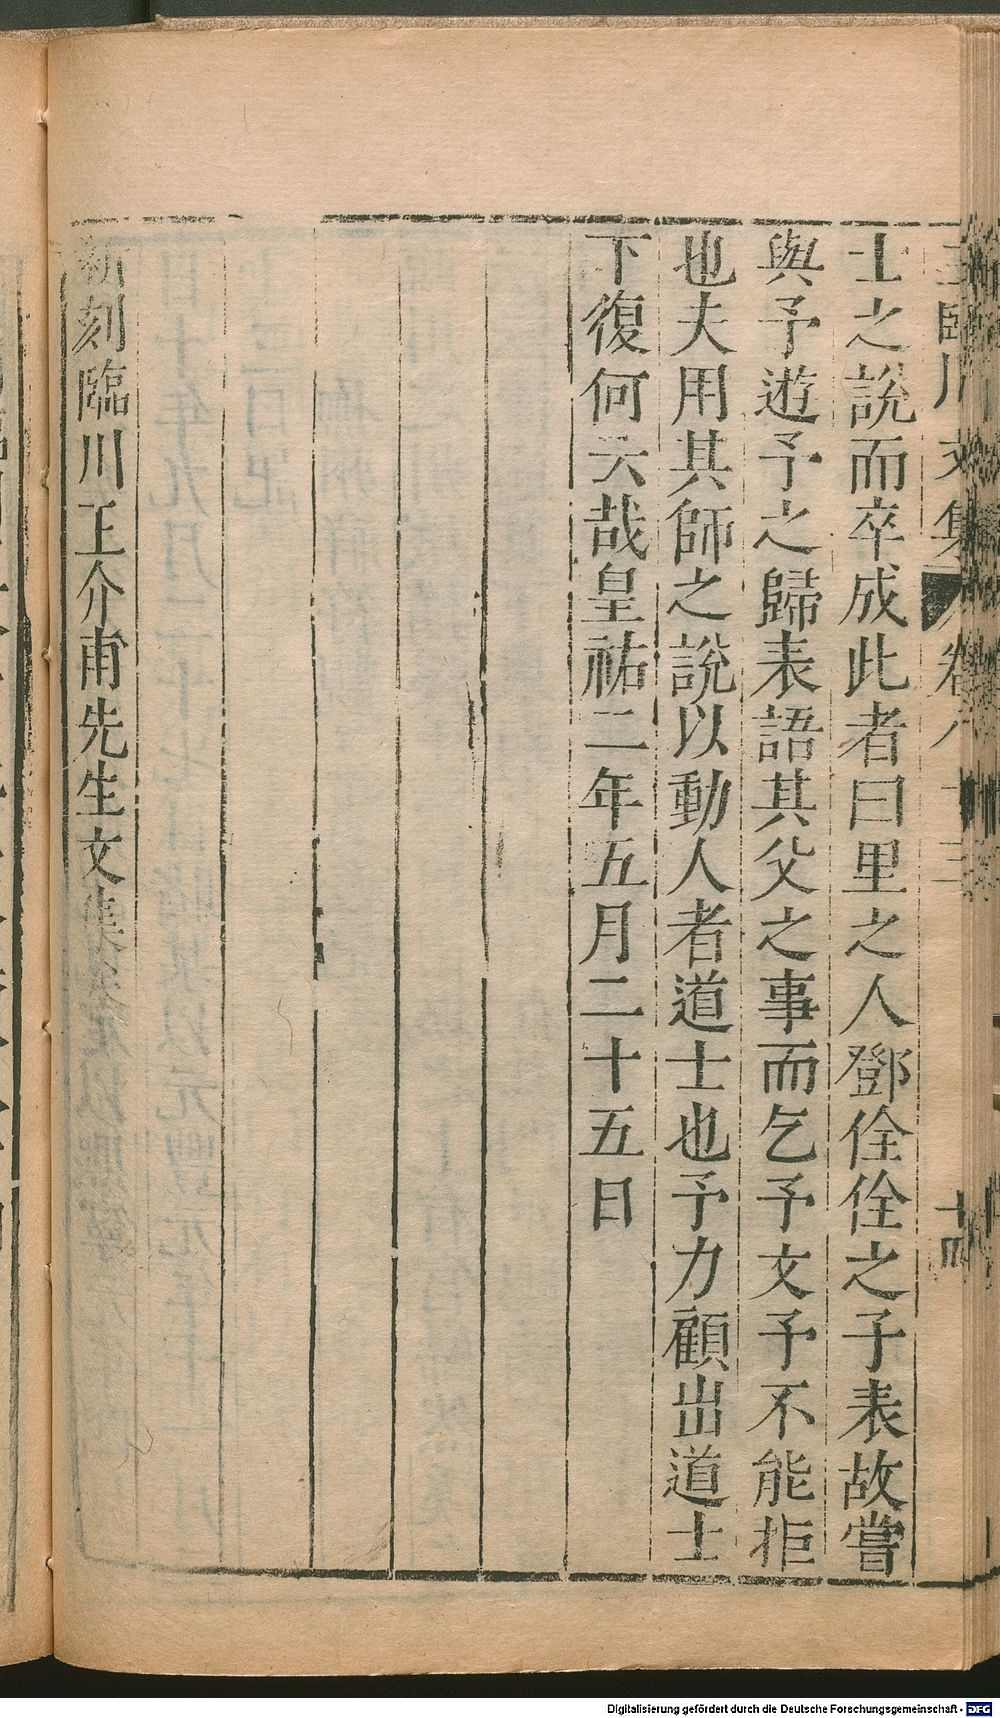 王臨川文集 卷八十三 十四
士之說而卒成此者曰里之人鄧佺佺之子表故嘗
與予遊予之歸表語其父之事而乞予文予不能拒
也夫用其師之說以動人者道士也予力顧出道士
下復何云哉皇祐二年五月二十五日
新刻臨川王介甫先生文集卷
Digitalisierung gefördert durch die Deutsche Forschungsgemeinschaft - DFG